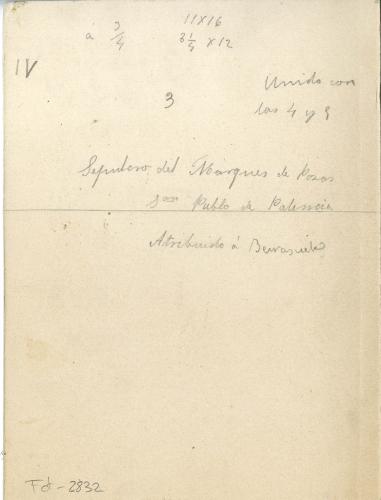 11x16
á 3/4 8 1/4 x12
IV
Unido con
3
las 4 y 5
Sepulcro del Marques de Pozas
San Pablo de Palencia
Atribuido á Berruguete
Fd-2832